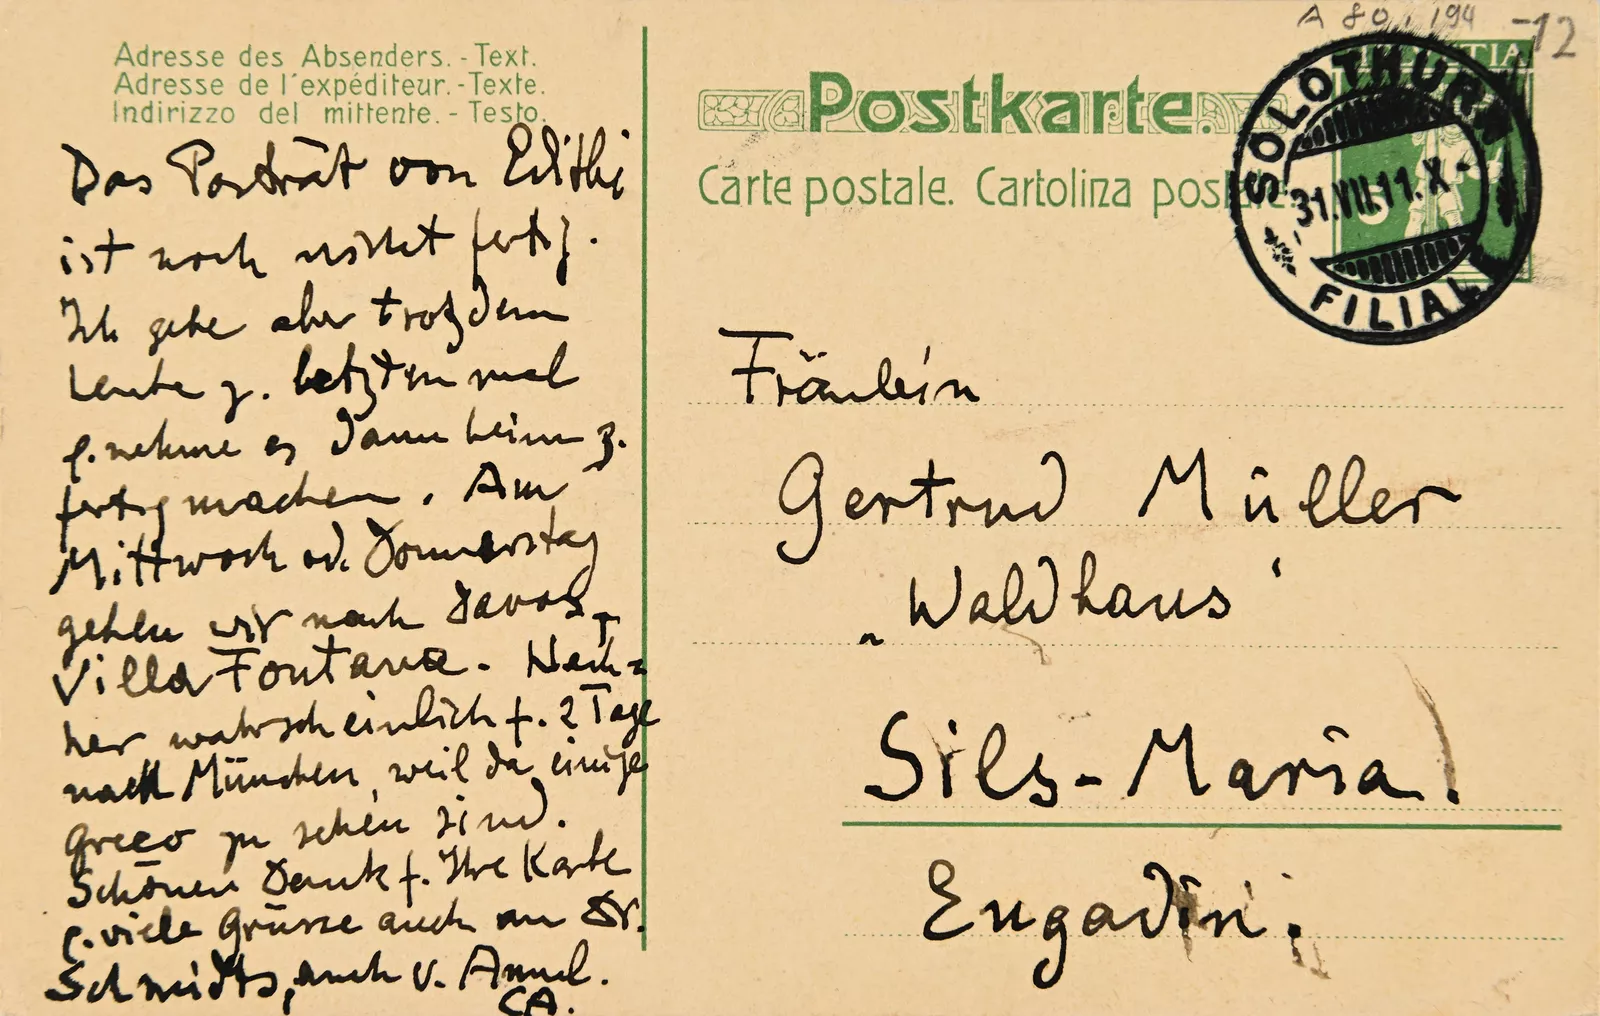 A 80.194 -12
Adresse des Absenders. - Text.
Adresse de l'expéditeur. - Texte.
Indirizzo del mittente. - Testo.
Postkarte.
Carte postale. Cartolina postale.
HELVETIA
SOLOTHURN
31.VII.11.X-
FILIALE
Das Porträt von Edithi
ist noch nicht fertig.
Ich gehe aber trotzdem
heute z. letzten mal
e. nehme es dann heim z.
fertig machen. Am
Mittwoch od. Donnerstag
gehen wir nach Davos,
Villa Fontana. Nach=
her wahrscheinlich f. 2 Tage
nach München, weil da einige
Greco zu sehen sind.
Schönen Dank f. Ihre Karte
e. viele Grüsse auch an Dr.
Schmidts, auch v. Anna.
CA.
Fräulein
Gertrud Müller
„Waldhaus"
Sils-Maria!
Engadin.